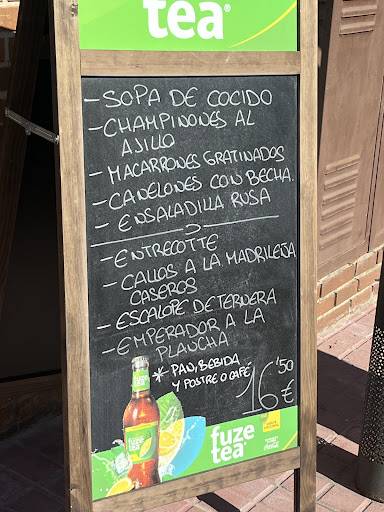 tea®
- SOPA DE COCIDO
- CHAMPIÑONES AL
AJILLO
- MACARRONES GRATINADOS
- CANELONES CON BECHA.
- ENSALADILLA RUSA
- ENTRECOTTE
- CALLOS A LA MADRILEÑA
CASEROS
- ESCALOPE DE TERNERA
- EMPERADOR A LA
PLANCHA
* PAN, BEBIDA
Y POSTRE O CAFÉ
16'50 €
fuze tea
fuze
tea®